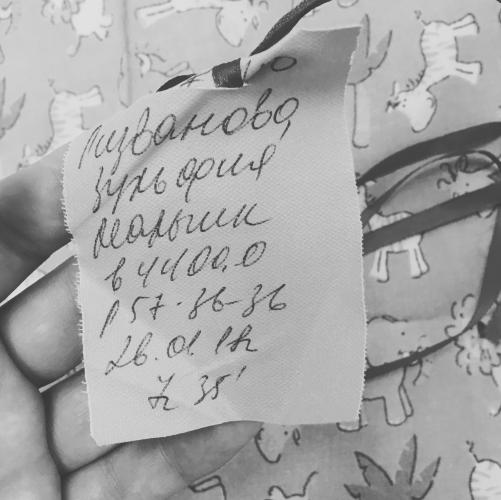 Ризванова
Зульфия
мальчик
в 4400,0
р 57-36-36
26.01.18г
7ч 35'